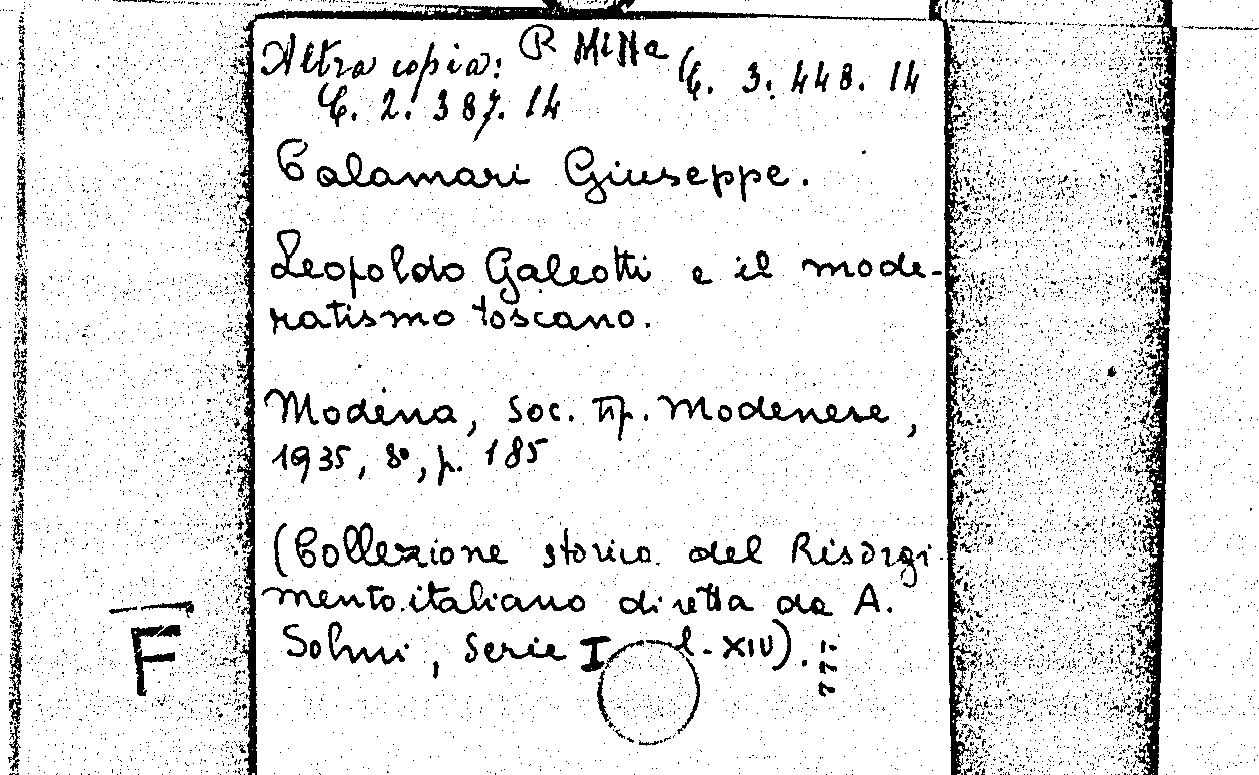 Altra copia: R Misc.
C. 3. 448. 14
C. 2. 387. 14
Calamari Giuseppe.
Leopoldo Galeotti e il mode-
ratismo toscano.
Modena, Soc. tip. Modenese,
1935, 8°, p. 185
(Collezione storica del Risorgi-
mento italiano diretta da A.
Solmi, serie I l-XIV).
777
F